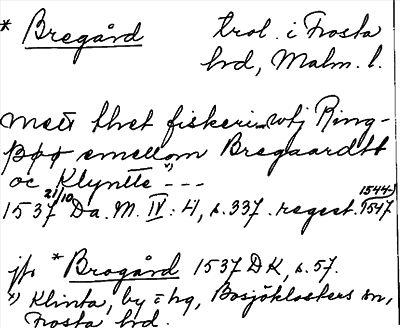 * Bregård trol. i Frosta
hrd, Malm. l.
mett thet fiskeri wtj Ring-
þøø emellom Bregaardtt
oc Klyntte *) ---
1537 21/10 Da. M. IV : 4, s. 337. regest. 1544-1547
jfr *Brogård 1537 DK, s. 57.
*) Klinta, by = hg, Bosjöklosters sn,
Frosta hrd.